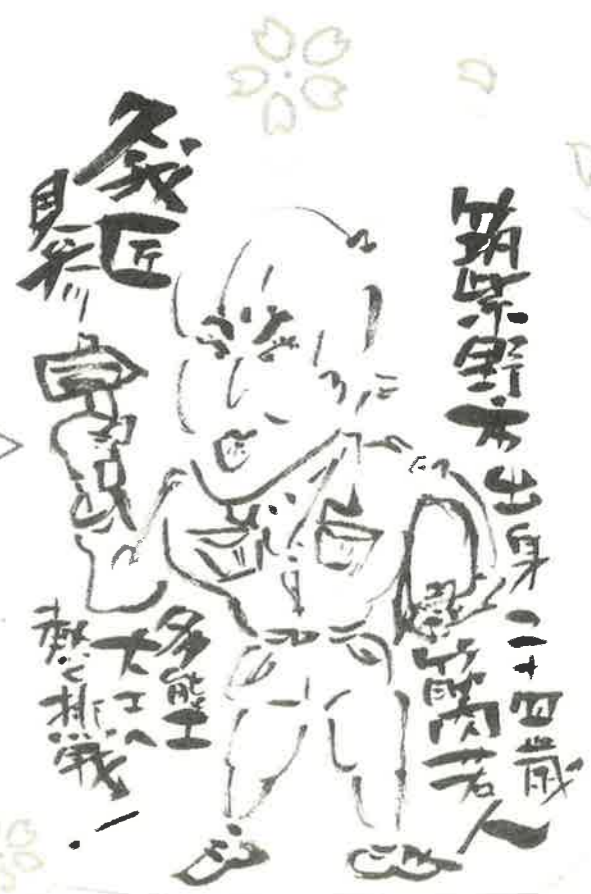 筑紫野市出身二十四歳
筋肉若人
久我匠
見参!!
多能工
大工へ
熱く挑戦!